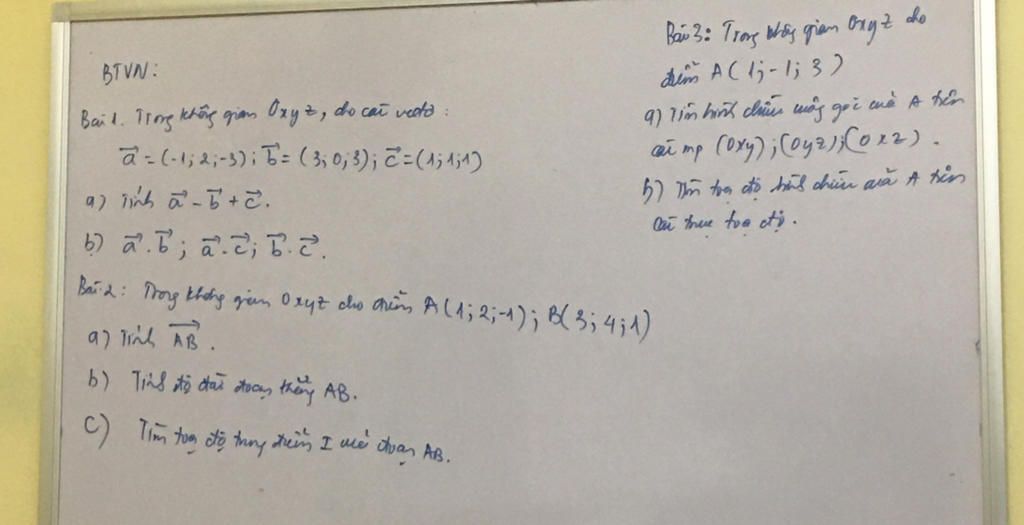 BTVN:
Bài 1. Trong không gian Oxyz, cho các vectơ:
a⃗ = (-1; 2; -3); b⃗ = (3; 0; 3); c⃗ = (1; 1; 1)
a) Tính a⃗ - b⃗ + c⃗.
b) a⃗.b⃗; a⃗.c⃗; b⃗.c⃗.
Bài 2: Trong không gian Oxyz cho điểm A(1; 2; -1); B(3; 4; 1)
a) Tính AB⃗.
b) Tính độ dài đoạn thẳng AB.
c) Tìm toạ độ trung điểm I của đoạn AB.
Bài 3: Trong không gian Oxyz cho
điểm A(1; -1; 3)
a) Tìm hình chiếu vuông góc của A trên
các mp (Oxy); (Oyz); (Oxz).
b) Tìm toạ độ hình chiếu của A trên
các trục toạ độ.